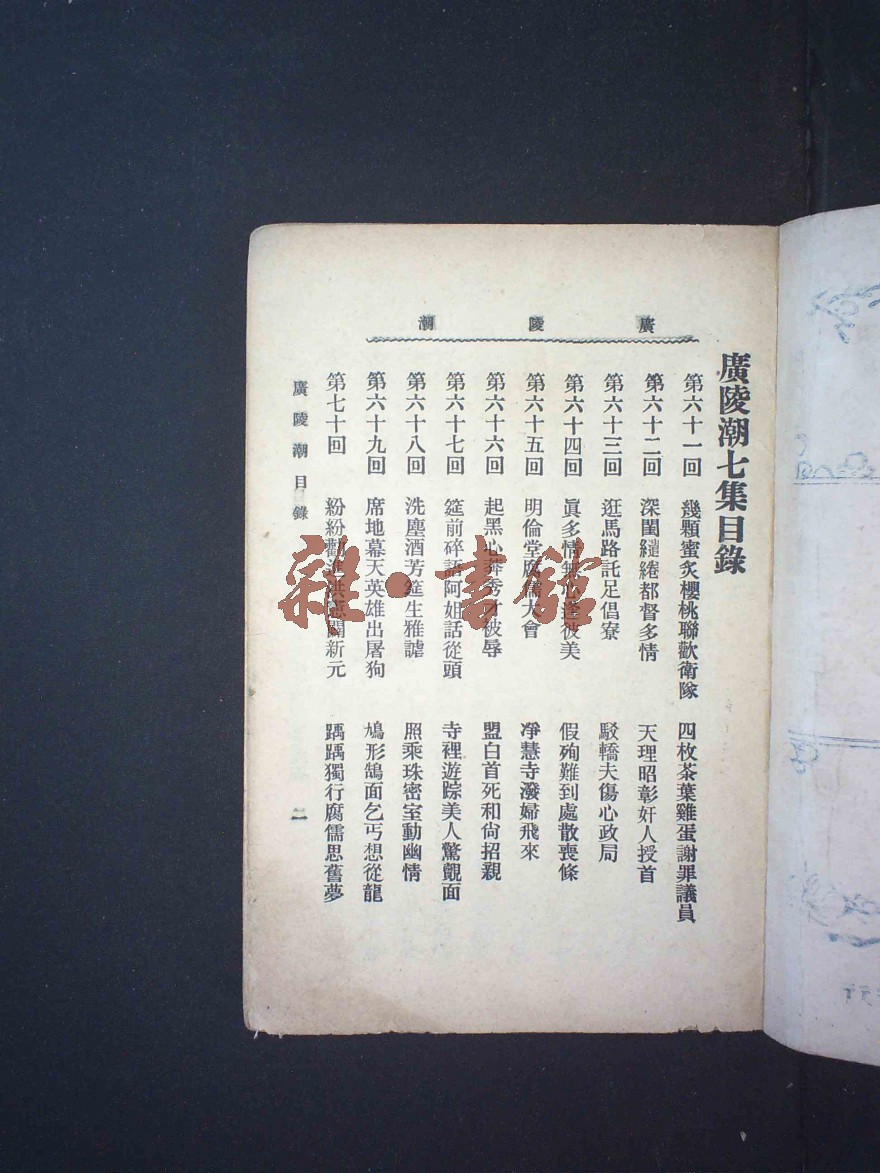 廣陵潮
廣陵潮七集目錄
第六十一回 幾顆蜜炙櫻桃聯歡衛隊 四枚茶葉雞蛋謝罪議員
第六十二回 深閨繾綣都督多情 天理昭彰奸人授首
第六十三回 逛馬路託足倡寮 駁轎夫傷心政局
第六十四回 眞多情無心逢彼美 假殉難到處散喪條
第六十五回 明倫堂腐儒大會 凈慧寺潑婦飛來
第六十六回 起黑心莽秀才被辱 盟白首死和尙招親
第六十七回 筵前碎語阿姐話從頭 寺裡遊踪美人驚覿面
第六十八回 洗塵酒芳筵生雅謔 照乘珠密室動幽情
第六十九回 席地幕天英雄出屠狗 鳩形鵠面乞丐想從龍
第七十回 紛紛勸進洪憲闢新元 踽踽獨行腐儒思舊夢
廣陵潮目錄
二
雜·書館